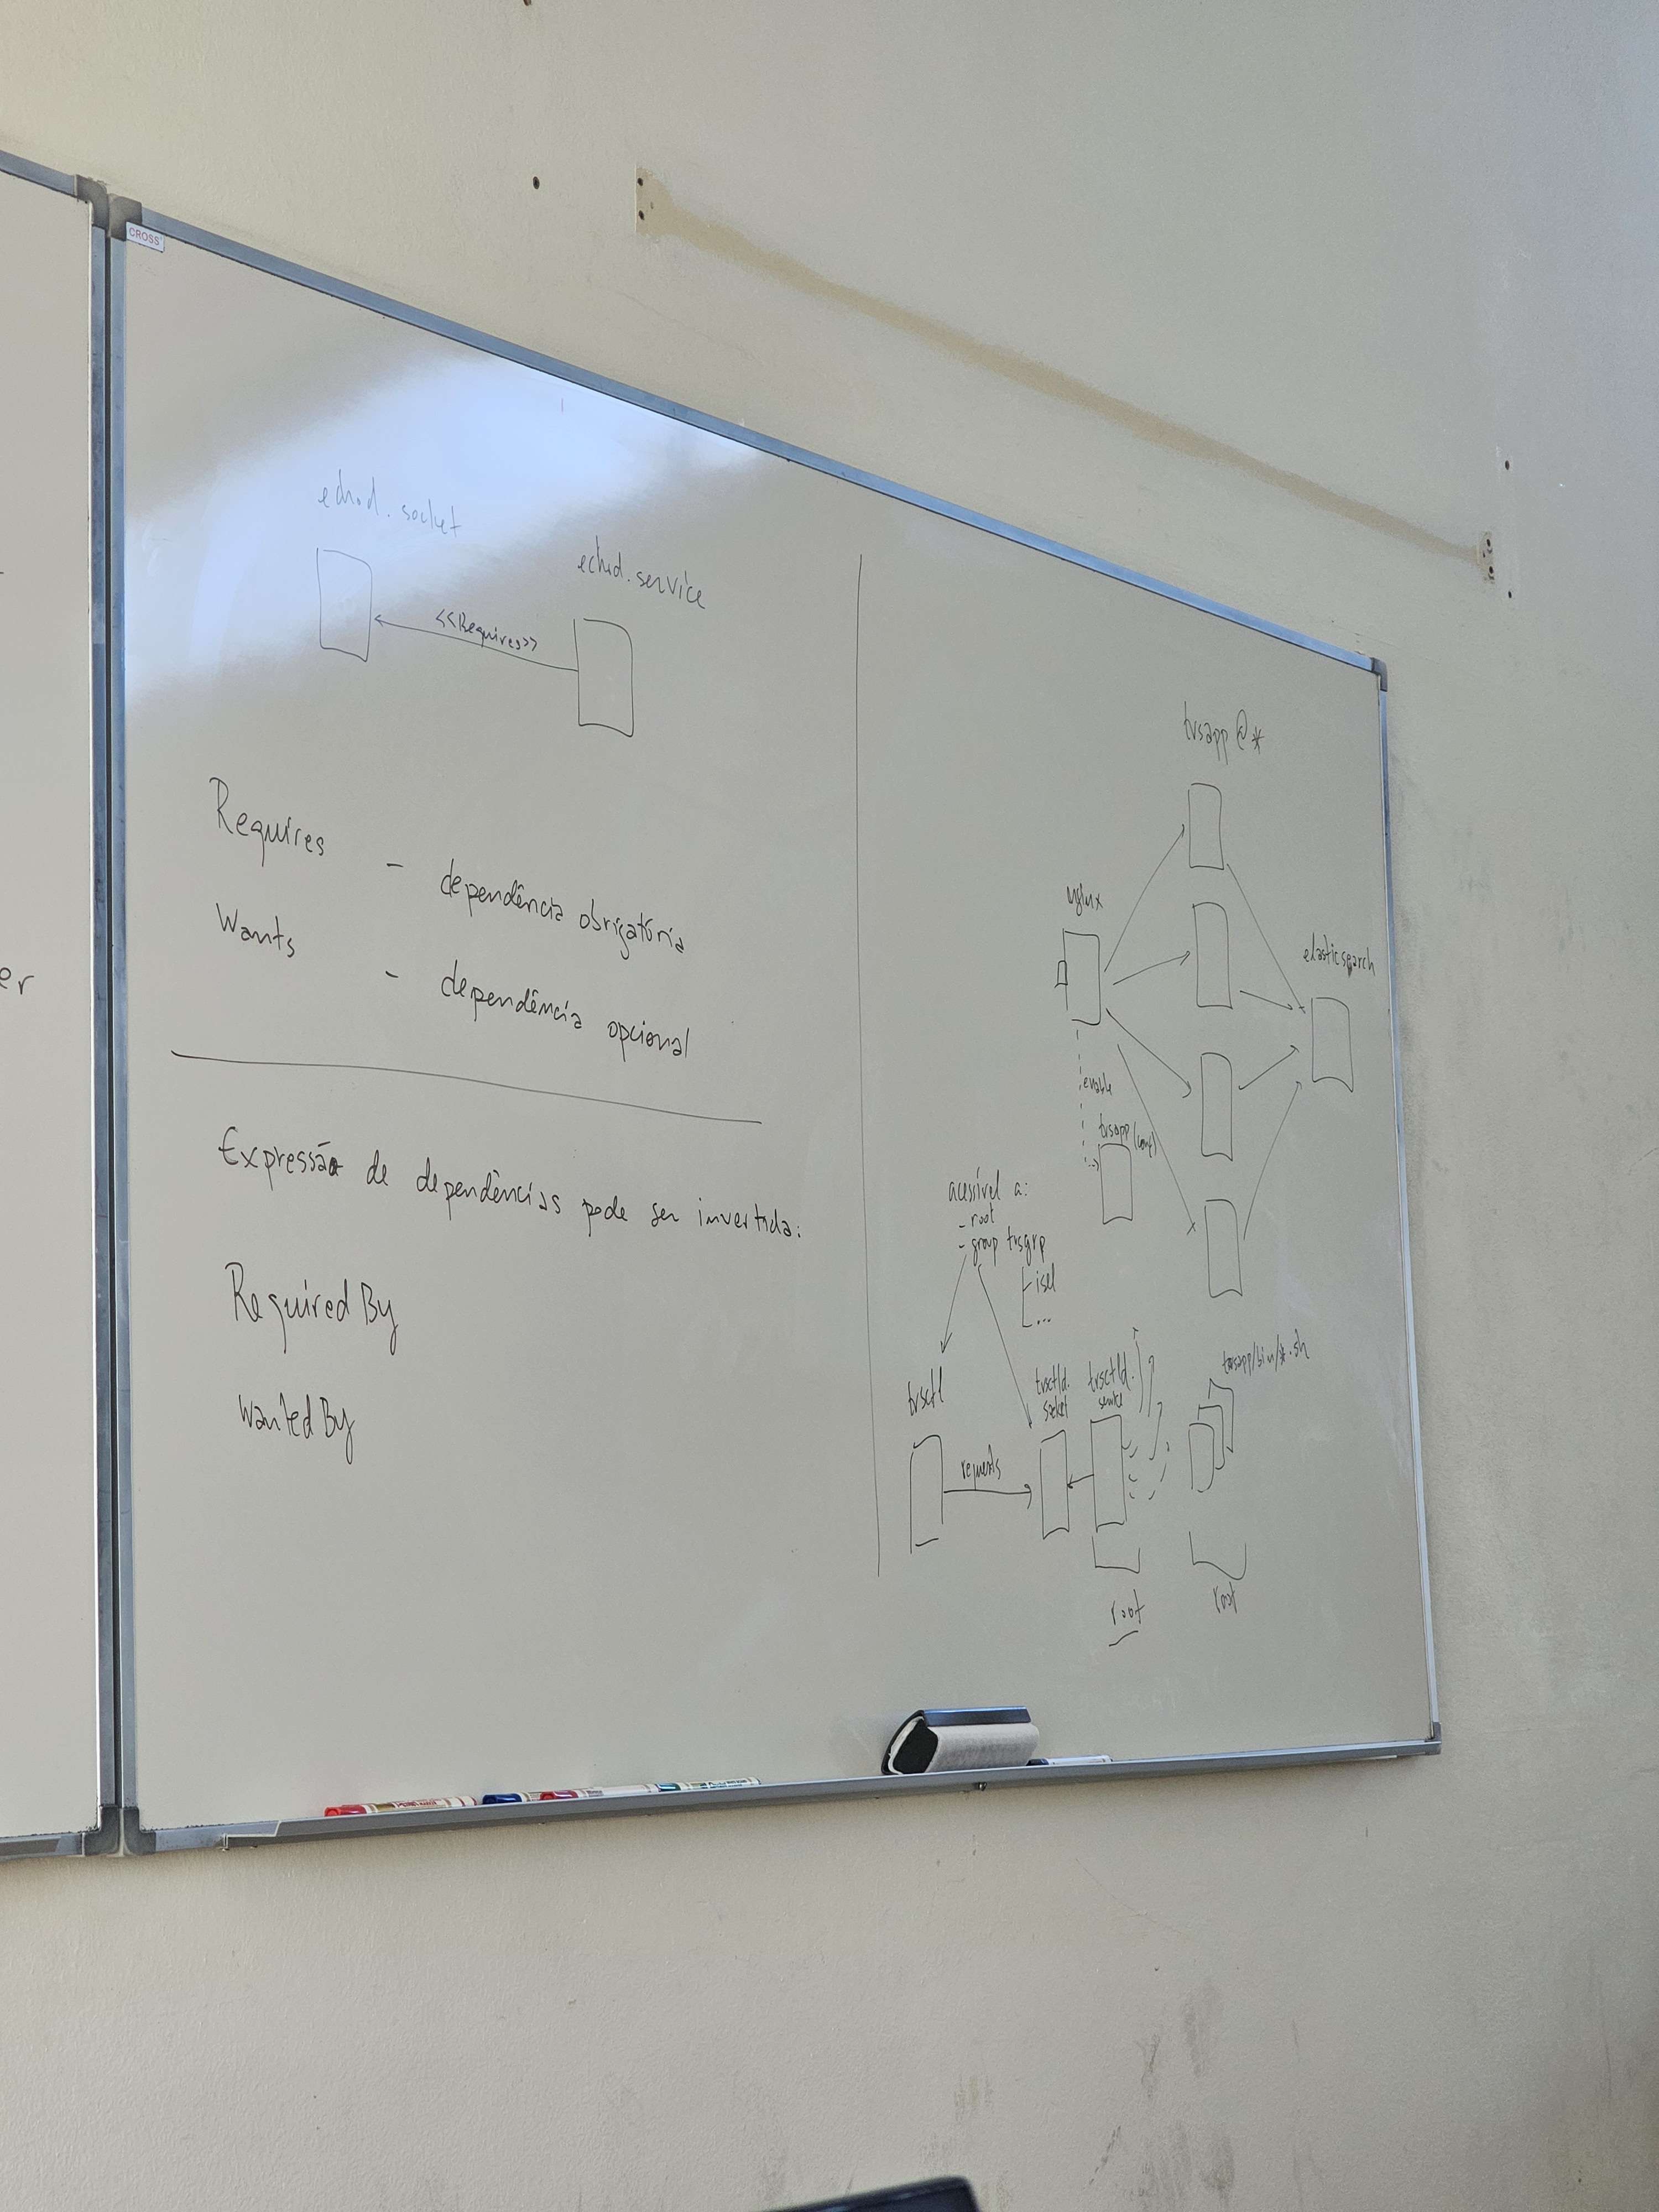 CROSS
er
echod.socket
echod.service
<<Requires>>
Requires - dependência obrigatória
Wants - dependência opcional
Expressão de dependências pode ser invertida:
RequiredBy
WantedBy
tvsapp@*
nginx
elasticsearch
enable
tvsapp (conf)
acessível a:
- root
- group tvsgrp
- isel
...
tvsctl
requests
tvsctld.
socket
tvsctld.
service
tvsapp/bin/*.sh
root
root